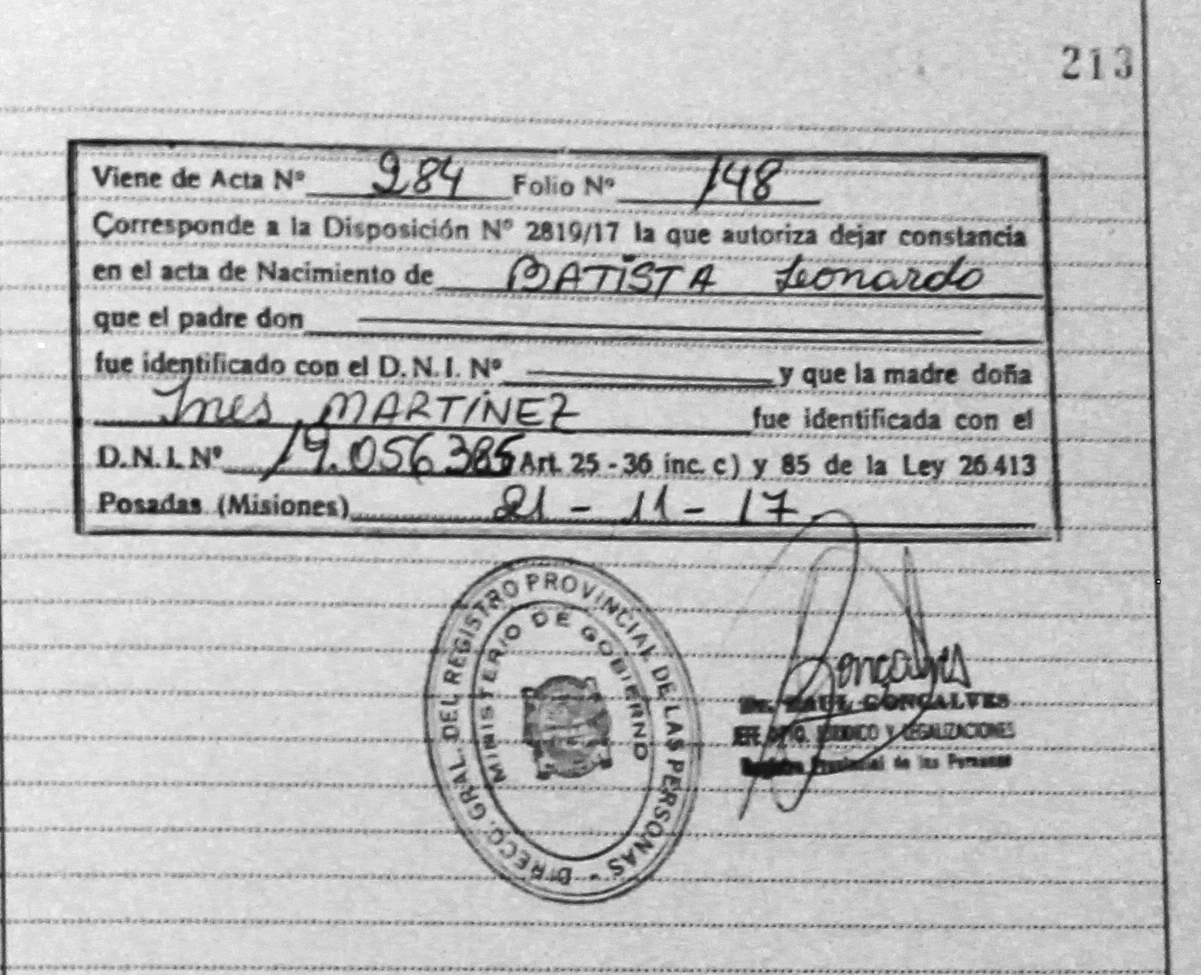 213
Viene de Acta Nº 284 Folio Nº 148
Corresponde a la Disposición Nº 2819/17 la que autoriza dejar constancia
en el acta de Nacimiento de BATISTA Leonardo
que el padre don
fue identificado con el D.N.I. Nº y que la madre doña
Ines MARTINEZ fue identificada con el
D.N.I. Nº 19.056.385 Art. 25 - 36 inc. c) y 85 de la Ley 26.413
Posadas (Misiones) 21 - 11 - 17
DIRECC. GRAL. DEL REGISTRO PROVINCIAL DE LAS PERSONAS -
MINISTERIO DE GOBIERNO
Goncalves
Dr. RAUL GONCALVES
JEFE DPTO. JURIDICO Y LEGALIZACIONES
Registro Provincial de las Personas